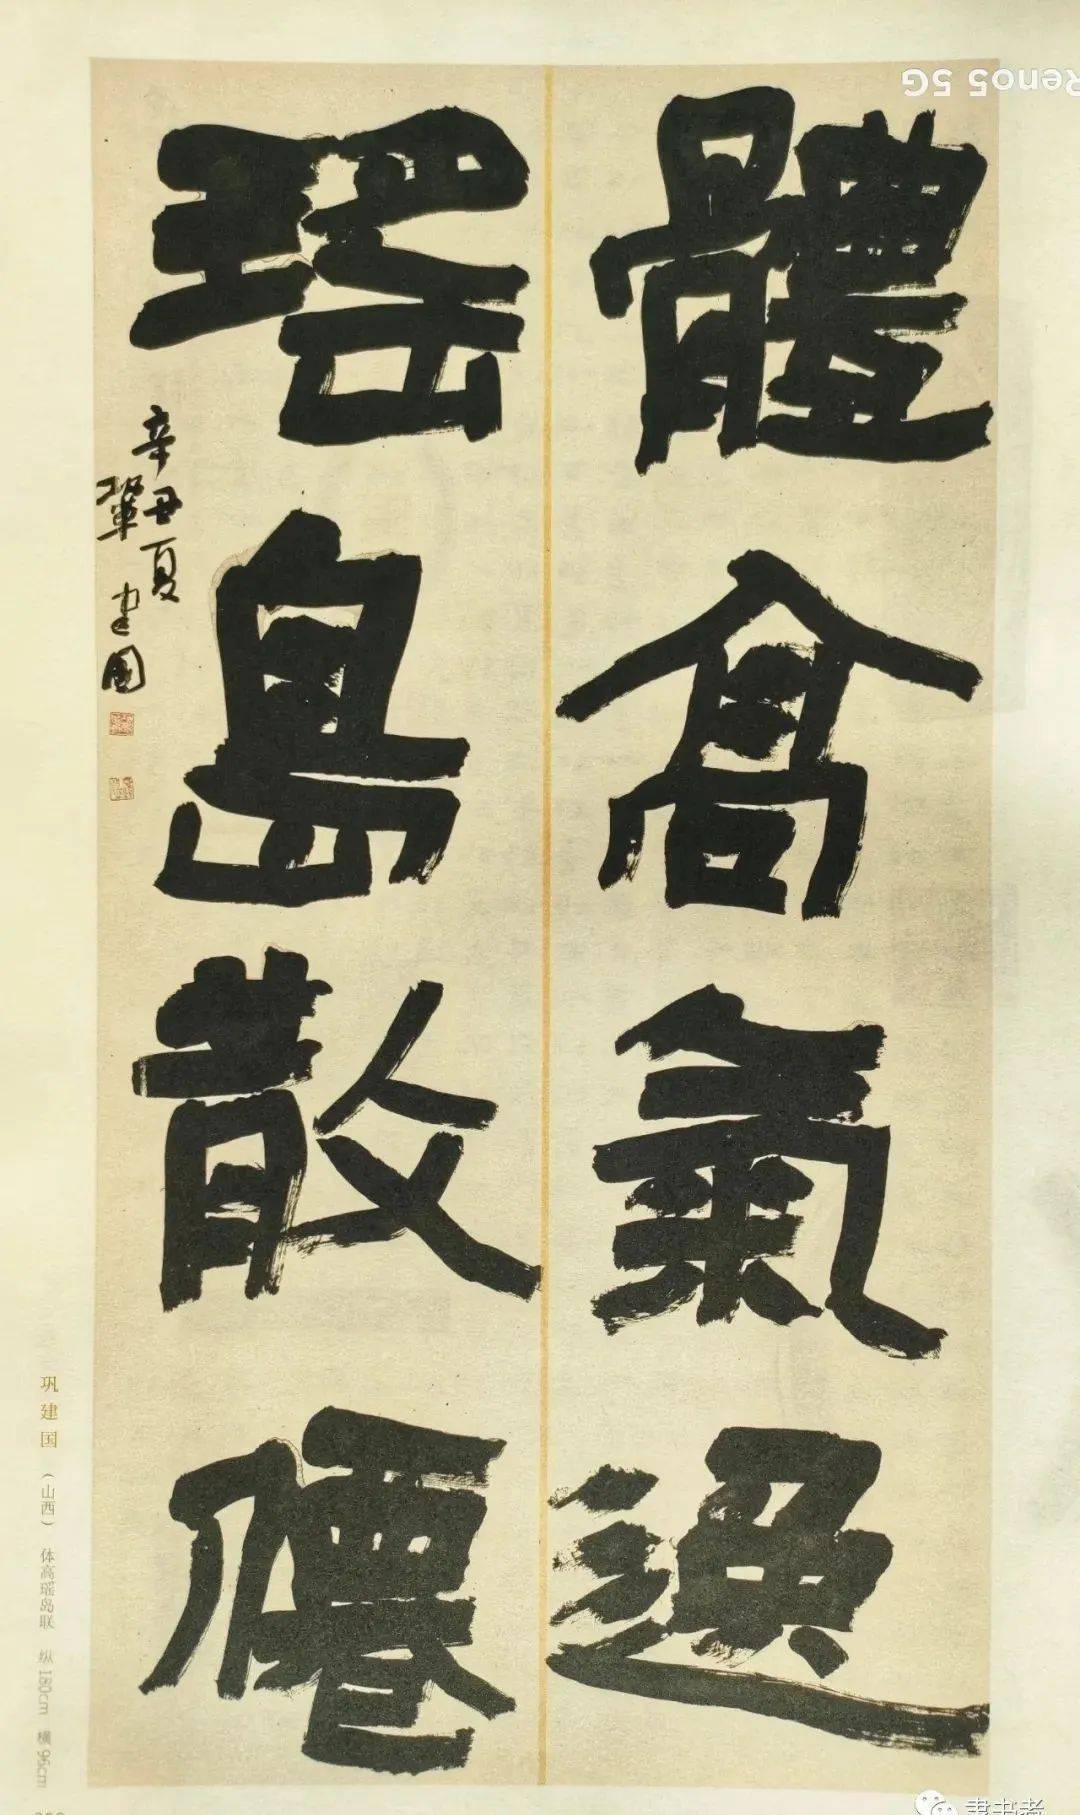 體高氣逸
瑤島散僊
辛丑夏
鞏建國
巩建国（山西） 体高瑶岛联 纵180cm 横96cm
Reno5 5G